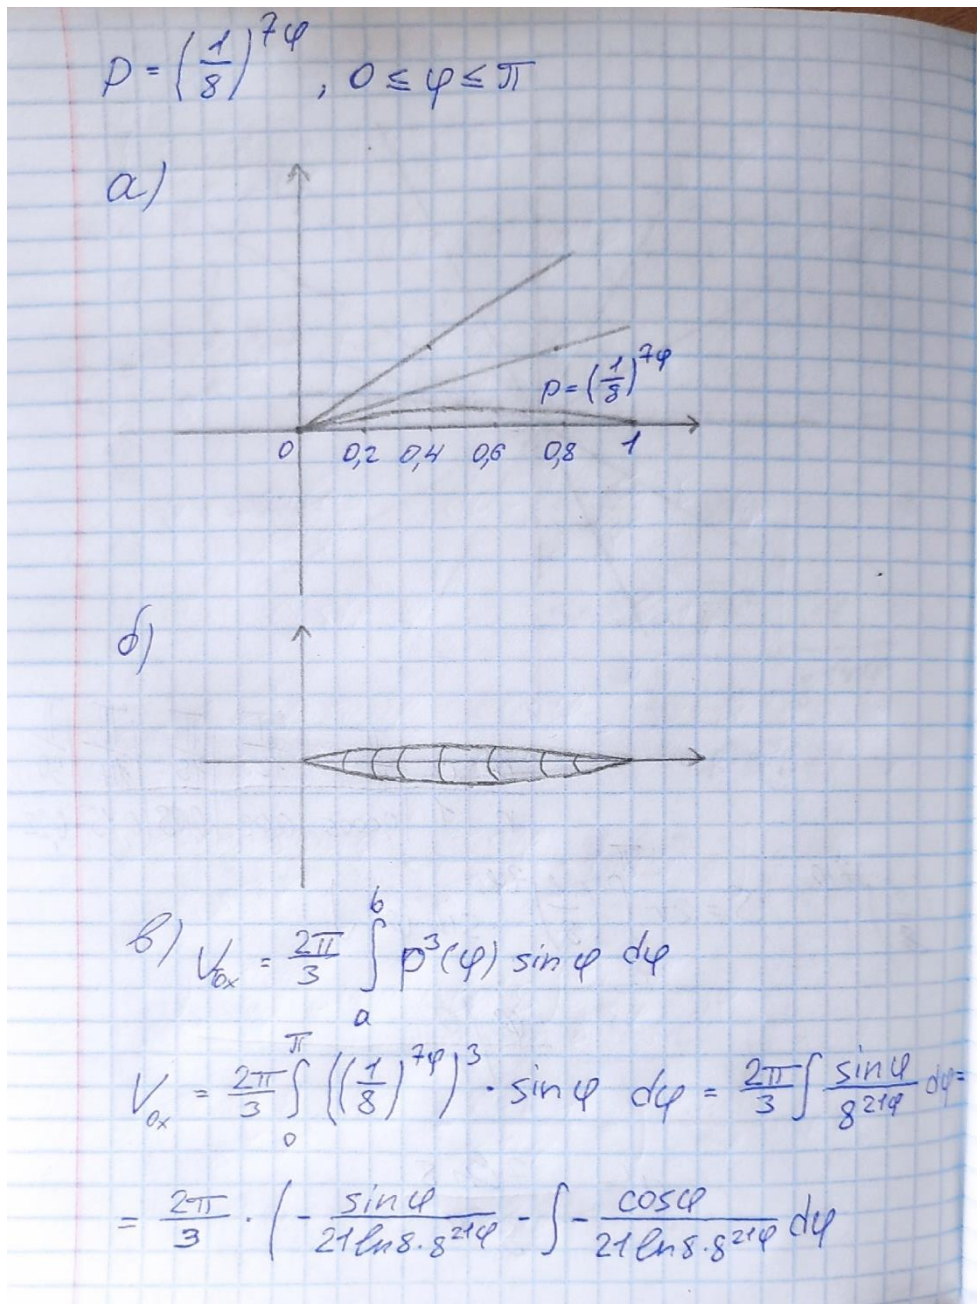 ρ = (1/8)^7φ , 0 ≤ φ ≤ π
а)
ρ = (1/8)^7φ
0 0,2 0,4 0,6 0,8 1
б)
в) V_ox = 2π/3 ∫_a^b ρ³(φ) sin φ dφ
V_ox = 2π/3 ∫_0^π ((1/8)^7φ)^3 · sin φ dφ = 2π/3 ∫ sin φ / 8^21φ dφ =
= 2π/3 · ( - sin φ / 21 ln 8 · 8^21φ - ∫ - cos φ / 21 ln 8 · 8^21φ dφ